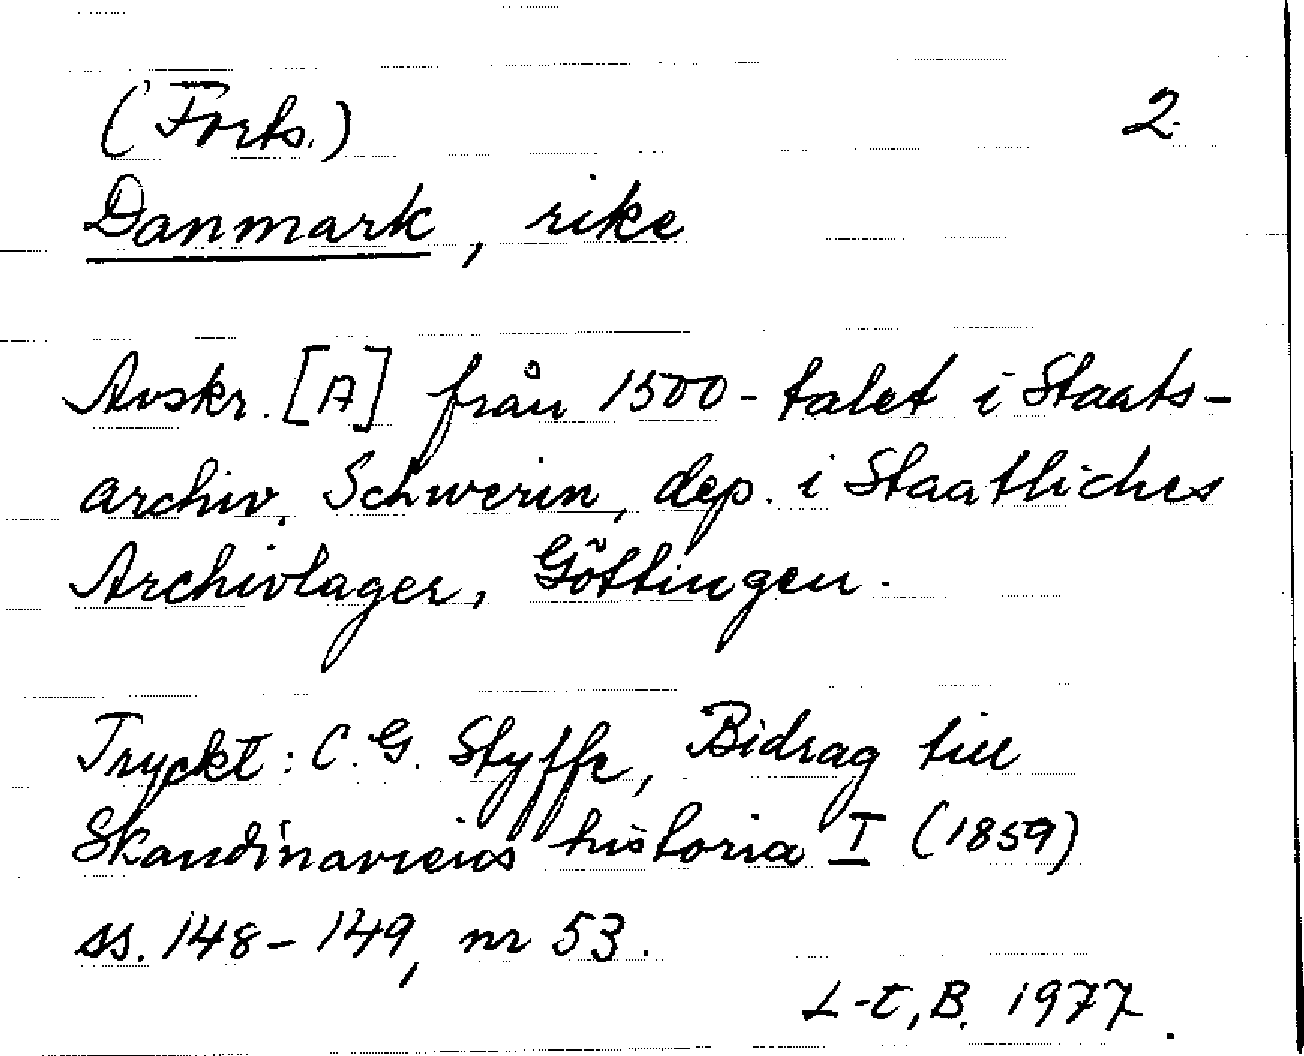 (Forts.) 2.
Danmark, rike
Avskr. [A] från 1500-talet i Staats-
archiv, Schwerin, dep. i Staatliches
Archivlager, Göttingen.
Tryckt: C.G. Styffe, Bidrag till
Skandinaviens historia I (1859)
ss. 148-149, nr 53.
L-t, B. 1977.